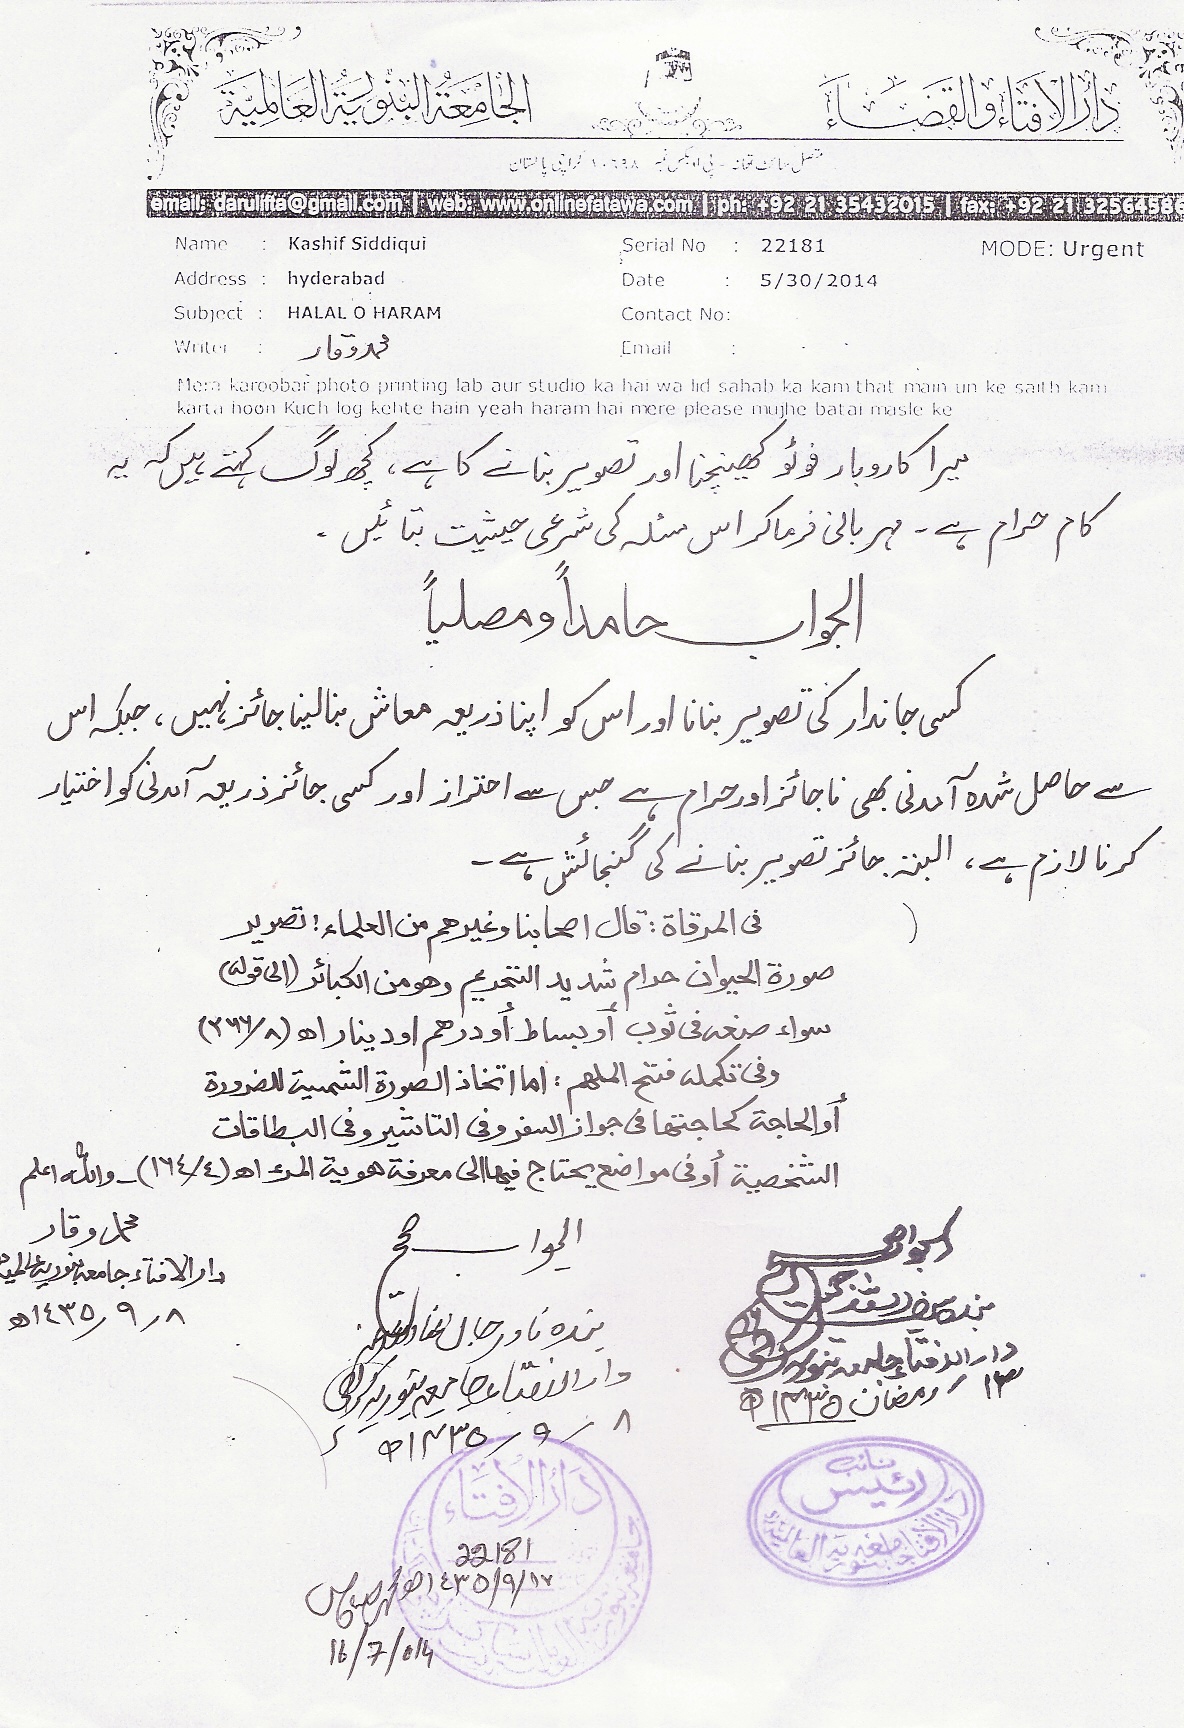 دار الافتاء والقضاء
الجامعة البنورية العالمية
متصل سائٹ تھانہ - پی او بکس نمبر ١٠٦٩٨ کراچی پاکستان
email: darulifta@gmail.com | web: www.onlinefatawa.com | ph: +92 21 35432015 | fax: +92 21 32564586
Name : Kashif Siddiqui Serial No : 22181 MODE: Urgent
Address : hyderabad Date : 5/30/2014
Subject : HALAL O HARAM Contact No:
Writer : محمد وقار Email :
Mera karoobar photo printing lab aur studio ka hai wa lid sahab ka kam that main un ke saith kam
karta hoon Kuch log kehte hain yeah haram hai mere please mujhe batai masle ke
میرا کاروبار فوٹو کھینچنا اور تصویر بنانے کا ہے، کچھ لوگ کہتے ہیں کہ یہ
کام حرام ہے ۔ مہربانی فرماکر اس مسئلہ کی شرعی حیثیت بتائیں ۔
الجواب حامداً ومصلیاً
کسی جاندار کی تصویر بنانا اور اس کو اپنا ذریعہ معاش بنالینا جائز نہیں، جبکہ اس
سے حاصل شدہ آمدنی بھی ناجائز اور حرام ہے جس سے احتراز اور کسی جائز ذریعہ آمدنی کو اختیار
کرنا لازم ہے، البتہ جائز تصویر بنانے کی گنجائش ہے ۔
فی المرقاة : قال اصحابنا وغیرهم من العلماء : تصویر
صورة الحیوان حرام شدید التحریم وهو من الکبائر (الی قوله)
سواء صنعه فی ثوب أو بساط أو درهم او دینار اھ (٨/٢٦٦)
وفی تکمله فتح الملهم : اما اتخاذ الصورة الشمسیة للضرورة
أو الحاجة کحاجتها فی جواز السفر وفی التاشیر وفی البطاقات
الشخصیة أو فی مواضع یحتاج فیها الی معرفة هویة المرء اھ (٤/١٦٤) ۔ واللہ اعلم
محمد وقار
دار الافتاء جامعہ بنوریہ عالمیہ
٨ / ٩ / ١٤٣٥ھ
الجواب صحیح
بندہ
دار الافتاء جامعہ بنوریہ کراچی
٨ / ٩ / ١٤٣٥ھ
الجواب صحیح
بندہ
دار الافتاء جامعہ بنوریہ
١٣ / رمضان ١٤٣٥ھ
نائب
رئیس
دار الافتاء
22181
١٤٣٥/٩/١٧ھ
16/7/014